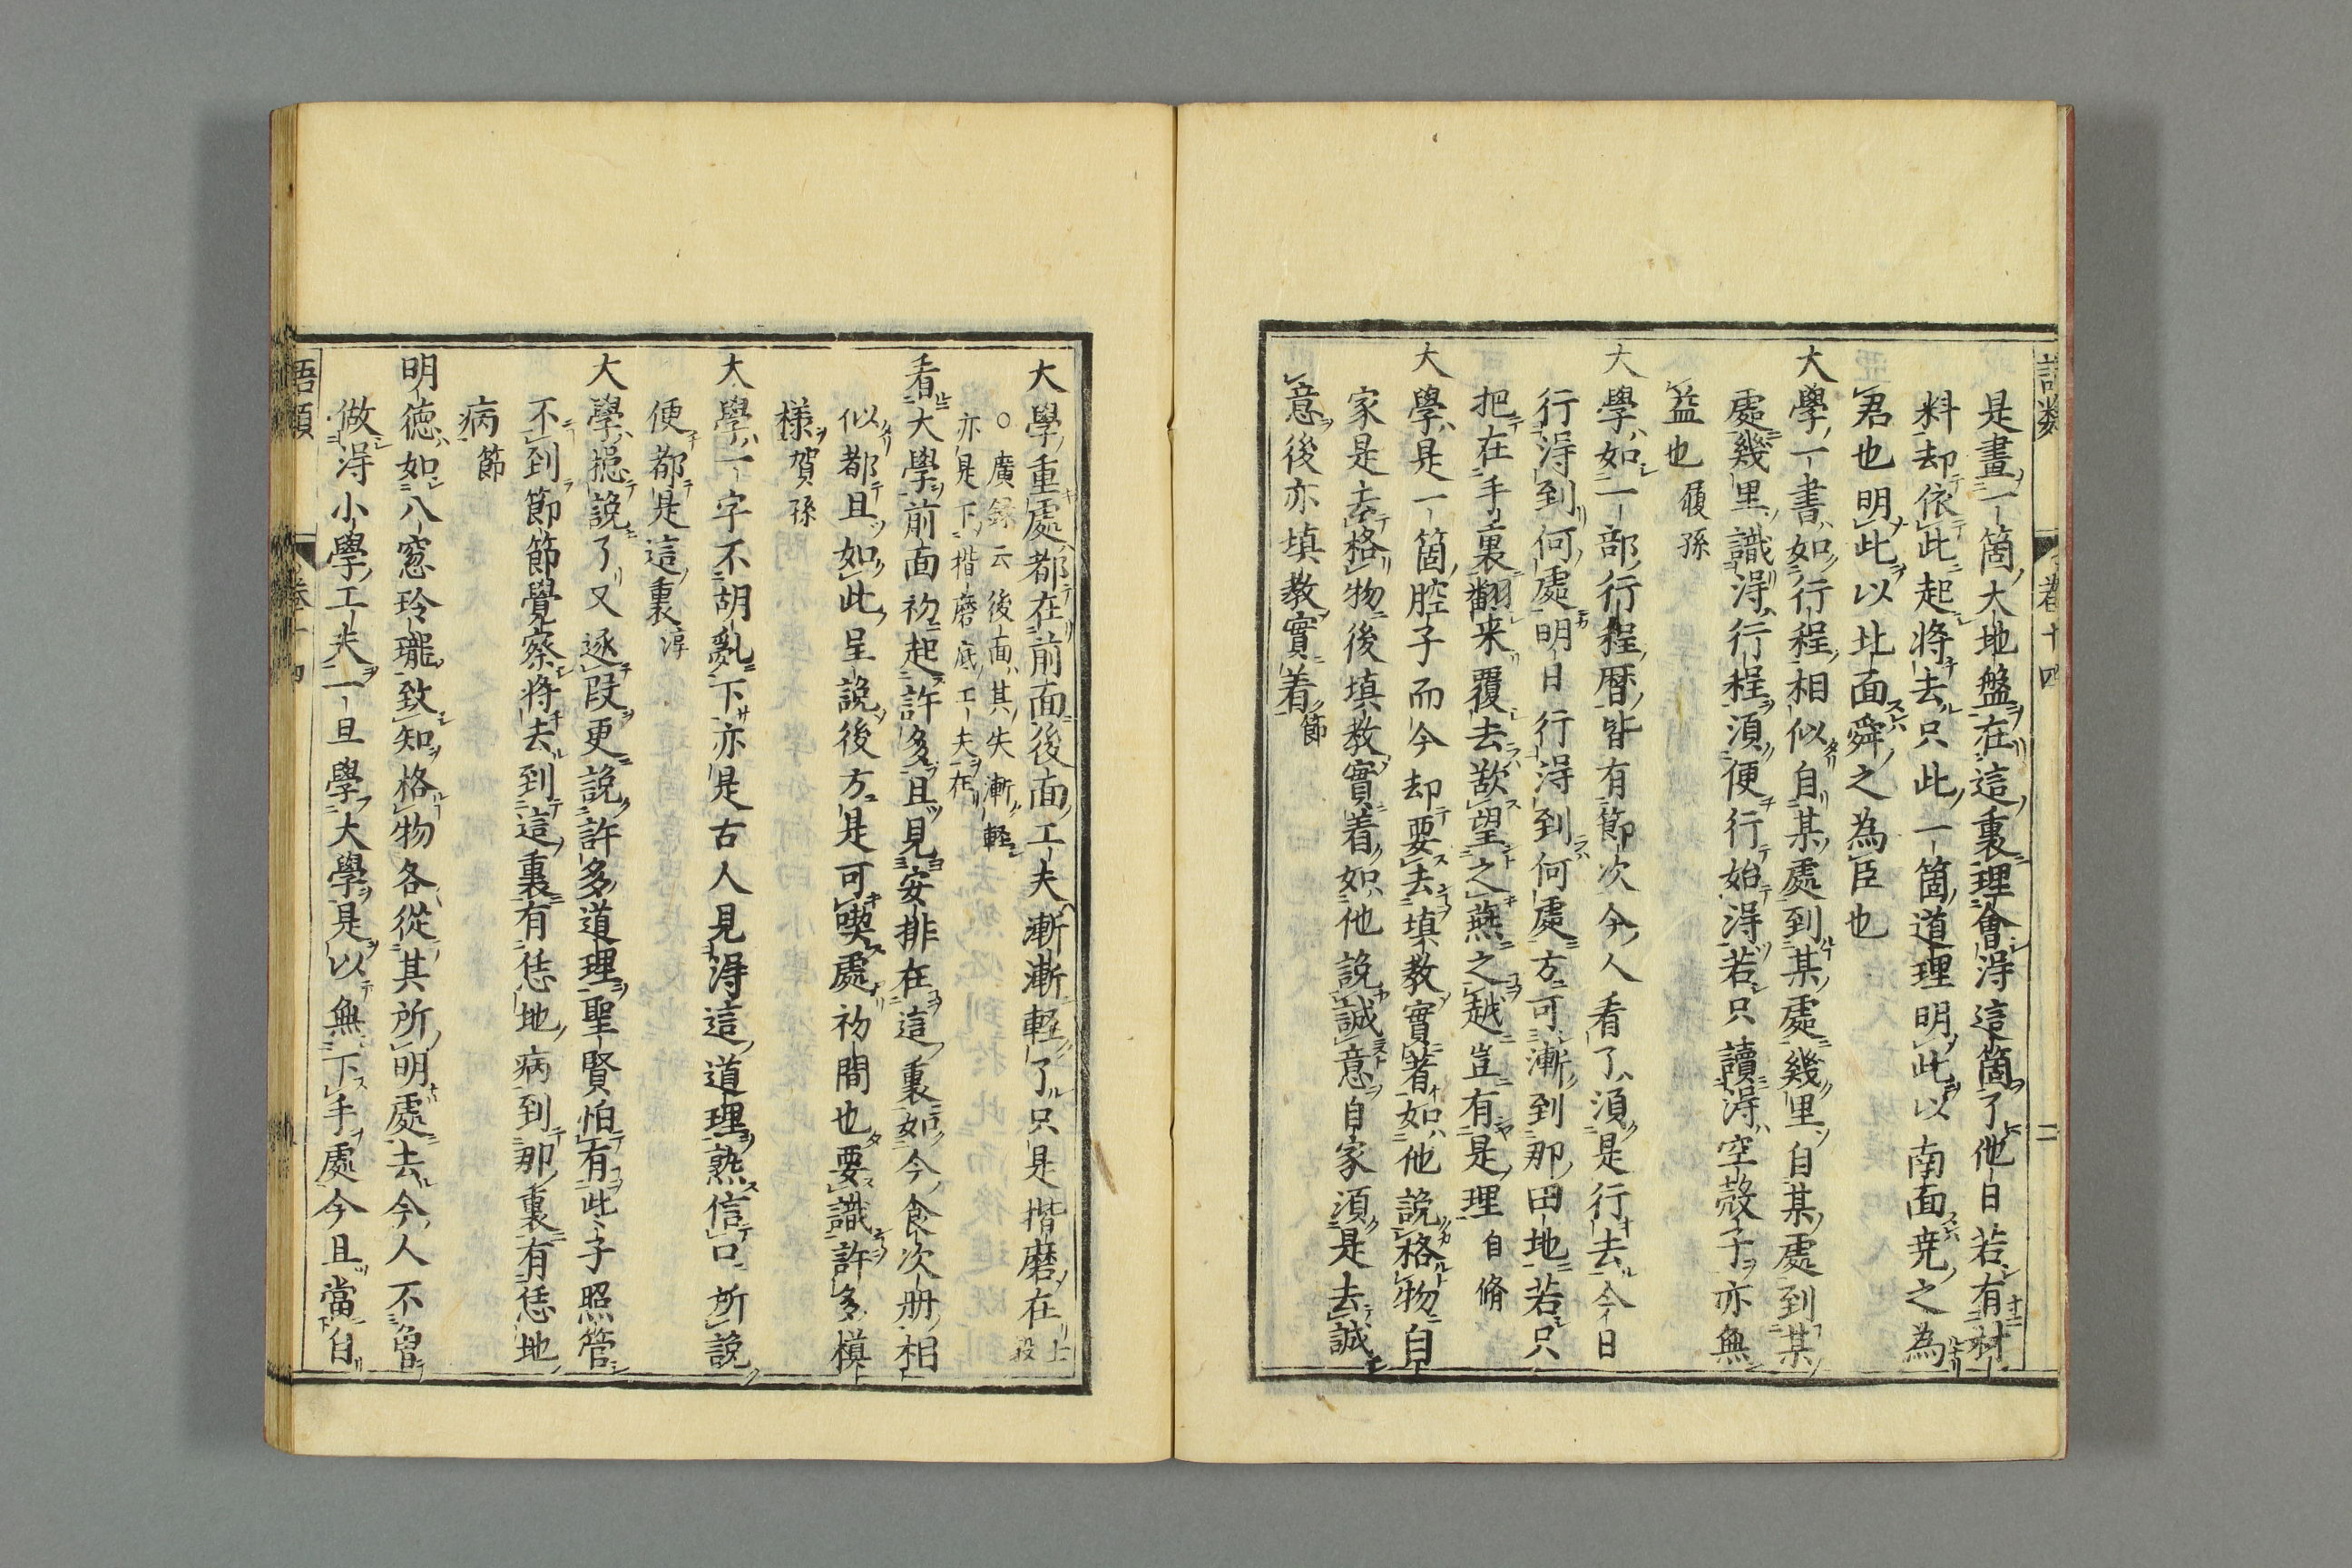 語類
卷十四
二
是畫一箇大地盤在這裏理會淂這箇了他日若有材
料却依此起將去只此一箇道理明此以南面尭之為
君也明此以北面舜之為臣也
大學一書如行程相似自某處到某處幾里自某處到某
處幾里識淂行程須便行始淂若只讀淂空殻子亦無
益也履孫
大學如一部行程暦皆有節次今人看了須是行去今日
行淂到何處明日行淂到何處方可漸到那田地若只
把在手裏翻来覆去欲望之燕之越豈有是理自脩
大學是一箇腔子而今却要去填教實著如他說格物自
家是去格物後填教實着如他說誠意自家須是去誠
意後亦填教實着節
大學重處都在前面後面工夫漸漸軽了只是揩磨在士毅
○廣録云後面其失漸軽
亦是下揩磨底工夫在
看大學前面初起許多且見安排在這裏如今食次册相
似都且如此呈說後方是可喫處初間也要識許多模
様賀孫
大學一字不胡亂下亦是古人見淂這道理熟信口所說
便都是這裏淳
大學揔說了又逐叚更說許多道理聖賢怕有此子照管
不到節節覺察將去到這裏有恁地病到那裏有恁地
病節
明徳如八窓玲瓏致知格物各從其所明處去今人不曾
做淂小學工夫一旦學大學是以無下手處今且當自
語類
卷十四